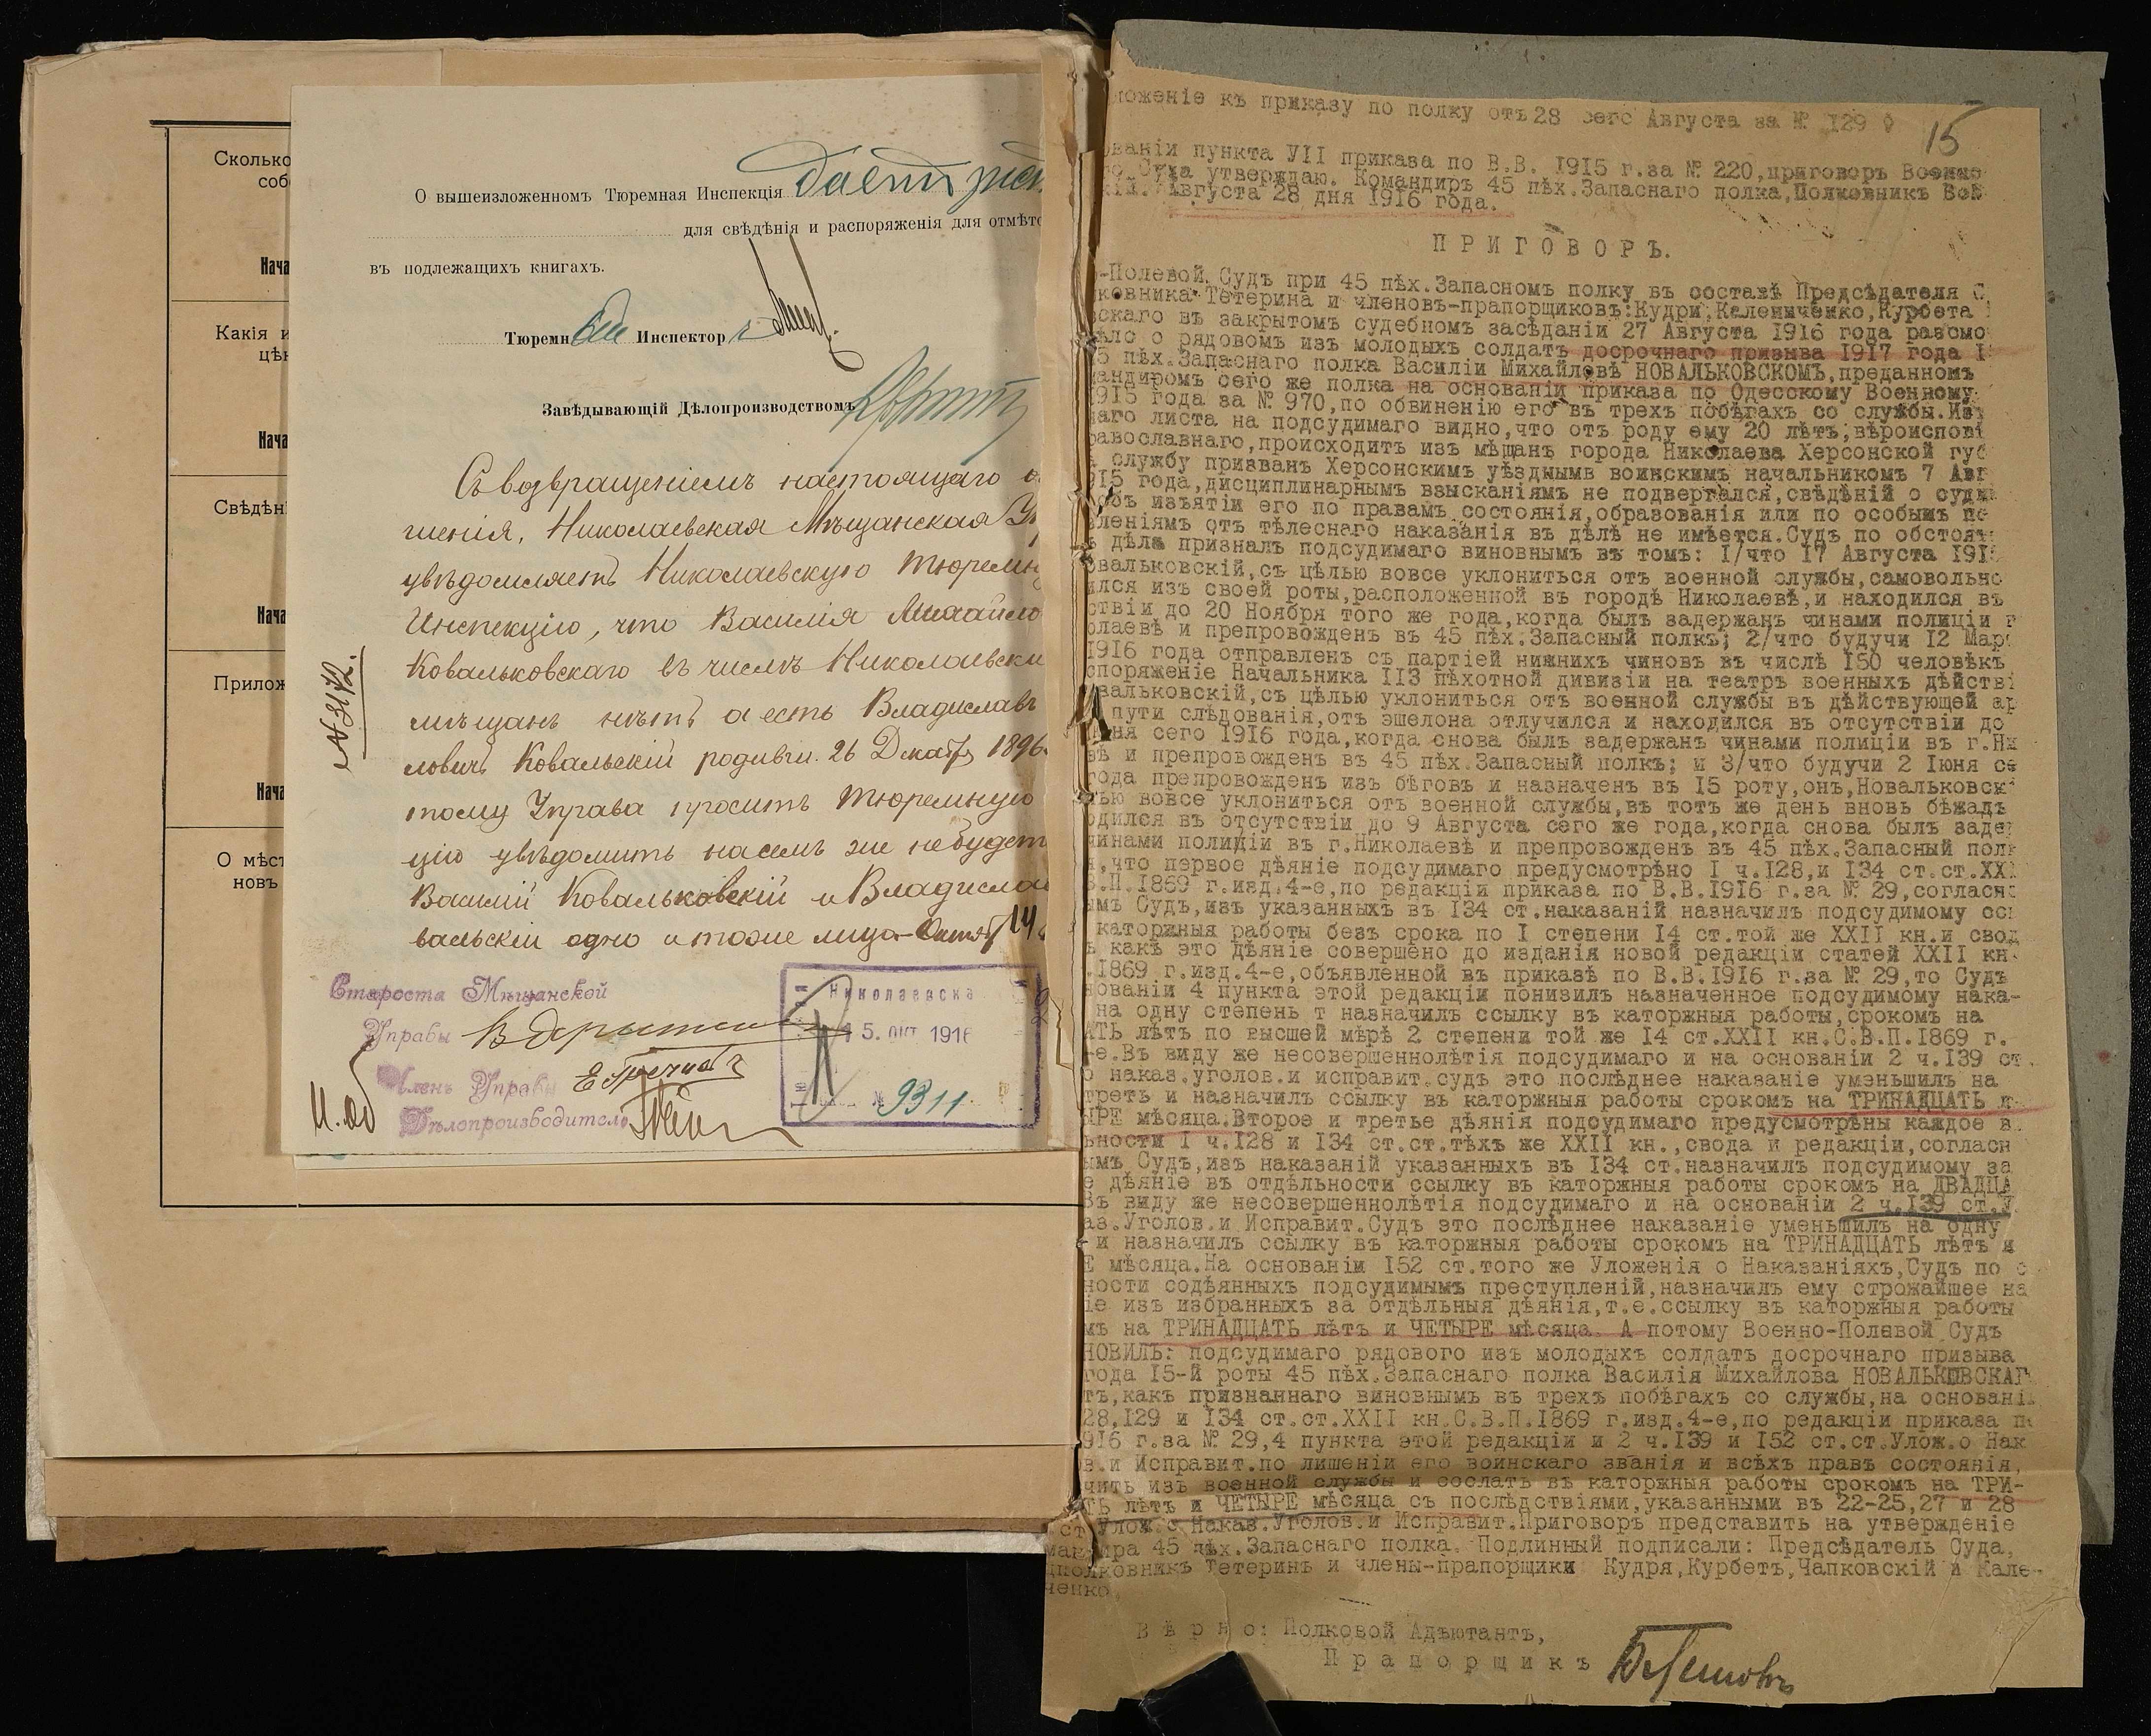 Сколько
соб
Нача
Какія и
цѣн
Нача
Свѣдѣн
Нача
Прилож
Нача
О мѣст
новъ
О вышеизложенномъ Тюремная Инспекція даетъ
для свѣдѣнія и распоряженія для отмѣто
въ подлежащихъ книгахъ.
Тюремн Инспектор
Завѣдывающій Дѣлопроизводствомъ
Съ возвращеніемъ настоящаго
шенія, Николаевская Мѣщанская Уп
увѣдомляетъ Николаевскую Тюремн
Инспекцію, что Василія Михайло
Ковальковскаго въ числѣ Николаевски
мѣщанъ нѣтъ а есть Владиславъ
ловичъ Ковальскій родивш. 26 Декабр 1896
тому Управа проситъ Тюремную
цію увѣдомить насемъ же небудетъ
Василій Ковальковскій и Владисла
вальскій одно и тоже лицо Октяб 14
№ 3142.
Староста Мѣщанской
Управы
Членъ Управы
Дѣлопроизводитель
Николаевска
15. ОКТ 1916
№ 9311
15
ложеніе къ приказу по полку отъ 28 сего Августа за № 129
ованіи пункта УІІ приказа по В.В. 1915 г.за № 220,приговоръ Военно
го Суда утверждаю. Командиръ 45 пѣх.Запаснаго полка,Полковникъ
кій. Августа 28 дня 1916 года.
П Р И Г О В О Р Ъ.
о-Полевой Судъ при 45 пѣх.Запасномъ полку въ составѣ Предсѣдателя С
ковника Тетерина и членовъ-прапорщиковъ:Кудри,Калениченко,Курбета
вскаго въ закрытомъ судебномъ засѣданіи 27 Августа 1916 года разсмо
ѣло о рядовомъ изъ молодыхъ солдатъ досрочнаго призыва 1917 года 1
5 пѣх.Запаснаго полка Василіи Михайловѣ НОВАЛЬКОВСКОМЪ,преданномъ
андиромъ сего же полка на основаніи приказа по Одесскому Военному
915 года за № 970,по обвиненію его въ трехъ побѣгахъ со службы.Изъ
наго листа на подсудимаго видно,что отъ роду ему 20 лѣтъ,вѣроисповѣ
равославнаго,происходитъ изъ мѣщанъ города Николаева Херсонской губ
службу призванъ Херсонскимъ уѣзднымв воинскимъ начальникомъ 7 Авг
915 года,дисциплинарнымъ взысканіямъ не подвергался,свѣдѣній о суди
объ изъятіи его по правамъ состоянія,образованія или по особымъ по
вленіямъ отъ тѣлеснаго наказанія въ дѣлѣ не имѣется.Судъ по обстоят
ъ дѣла призналъ подсудимаго виновнымъ въ томъ: 1/что 17 Августа 191
овальковскій,съ цѣлью вовсе уклониться отъ военной службы,самовольно
ился изъ своей роты,расположенной въ городѣ Николаевѣ,и находился въ
ствіи до 20 Ноября того же года,когда былъ задержанъ чинами полиціи в
олаевѣ и препровожденъ въ 45 пѣх.Запасный полкъ; 2/что будучи 12 Мар
1916 года отправленъ съ партіей нижнихъ чиновъ въ числѣ 150 человѣкъ
споряженіе Начальника 113 пѣхотной дивизіи на театръ военныхъ дѣйстві
вальковскій,съ цѣлью уклониться отъ военной службы въ дѣйствующей ар
пути слѣдованія,отъ эшелона отлучился и находился въ отсутствіи до
юня сего 1916 года,когда снова былъ задержанъ чинами полиціи въ г.Ни
вѣ и препровожденъ въ 45 пѣх.Запасный полкъ; и 3/что будучи 2 Іюня се
года препровожденъ изъ бѣговъ и назначенъ въ 15 роту,онъ,Новальковск
лью вовсе уклониться отъ военной службы,въ тотъ же день вновь бѣжадъ
одился въ отсутствіи до 9 Августа сего же года,когда снова былъ задер
чинами полиціи въ г.Николаевѣ и препровожденъ въ 45 пѣх.Запасный полк
я,что первое дѣяніе подсудимаго предусмотрѣно 1 ч.128,и 134 ст.ст.ХХІ
В.П.1869 г.изд.4-е,по редакціи приказа по В.В.1916 г.за № 29,согласн
ымъ Судъ,изъ указанныхъ въ 134 ст.наказаній назначилъ подсудимому сс
каторжныя работы безъ срока по 1 степени 14 ст.той же ХХІІ кн.и свод
ъ какъ это дѣяніе совершено до изданія новой редакціи статей ХХІІ кн.
.1869 г.изд.4-е,объявленной въ приказѣ по В.В.1916 г.за № 29,то Судъ
нованіи 4 пункта этой редакціи понизилъ назначенное подсудимому нака-
на одну степень т назначилъ ссылку въ каторжныя работы,срокомъ на
АТЬ лѣтъ по высшей мѣрѣ 2 степени той же 14 ст.ХХІІ кн.С.В.П.1869 г.
-е.Въ виду же несовершеннолѣтія подсудимаго и на основаніи 2 ч.139 ст.
о наказ.уголов.и исправит.судъ это послѣднее наказаніе уменьшилъ на
треть и назначилъ ссылку въ каторжныя работы срокомъ на ТРИНАДЦАТЬ л
ЫРЕ мѣсяца.Второе и третье дѣянія подсудимаго предусмотрѣны каждое в
ьности 1 ч.128 и 134 ст.ст.тѣхъ же ХХІІ кн.,свода и редакціи,согласн
ымъ Судъ,изъ наказаній указанныхъ въ 134 ст.назначилъ подсудимому за
е дѣяніе въ отдѣльности ссылку въ каторжныя работы срокомъ на ДВАДЦА
Въ виду же несовершеннолѣтія подсудимаго и на основаніи 2 ч.139 ст.У
аз.Уголов.и Исправит.Судъ это послѣднее наказаніе уменьшилъ на одну
и назначилъ ссылку въ каторжныя работы срокомъ на ТРИНАДЦАТЬ лѣтъ и
Е мѣсяца.На основаніи 152 ст.того же Уложенія о Наказаніяхъ,Судъ по с
ности содѣянныхъ подсудимымъ преступленій,назначилъ ему строжайшее на
іе изъ избранныхъ за отдѣльныя дѣянія,т.е.ссылку въ каторжныя работы
мъ на ТРИНАДЦАТЬ лѣтъ и ЧЕТЫРЕ мѣсяца. А потому Военно-Полевой Судъ
НОВИЛЪ: подсудимаго рядового изъ молодыхъ солдатъ досрочнаго призыва
года 15-й роты 45 пѣх.Запаснаго полка Василія Михайлова НОВАЛЬКОВСКАГ
тъ,какъ признаннаго виновнымъ въ трехъ побѣгахъ со службы,на основані
28,129 и 134 ст.ст.ХХІІ кн.С.В.П.1869 г.изд.4-е,по редакціи приказа п
916 г.за № 29,4 пункта этой редакціи и 2 ч.139 и 152 ст.ст.Улож.о Нак
в.и Исправит.по лишеніи его воинскаго званія и всѣхъ правъ состоянія,
чить изъ военной службы и сослать въ каторжныя работы срокомъ на ТРИ-
ТЬ лѣтъ и ЧЕТЫРЕ мѣсяца съ послѣдствіями,указанными въ 22-25,27 и 28
ст.Улож.о Наказ.Уголов.и Исправит.Приговоръ представить на утвержденіе
мандира 45 пѣх.Запаснаго полка. Подлинный подписали: Предсѣдатель Суда,
дполковникъ Тетеринъ и члены-прапорщики Кудря,Курбетъ,Чапковскій и Кале-
ченко.
В ѣ р н о: Полковой Адъютантъ,
П р а п о р щ и к ъ